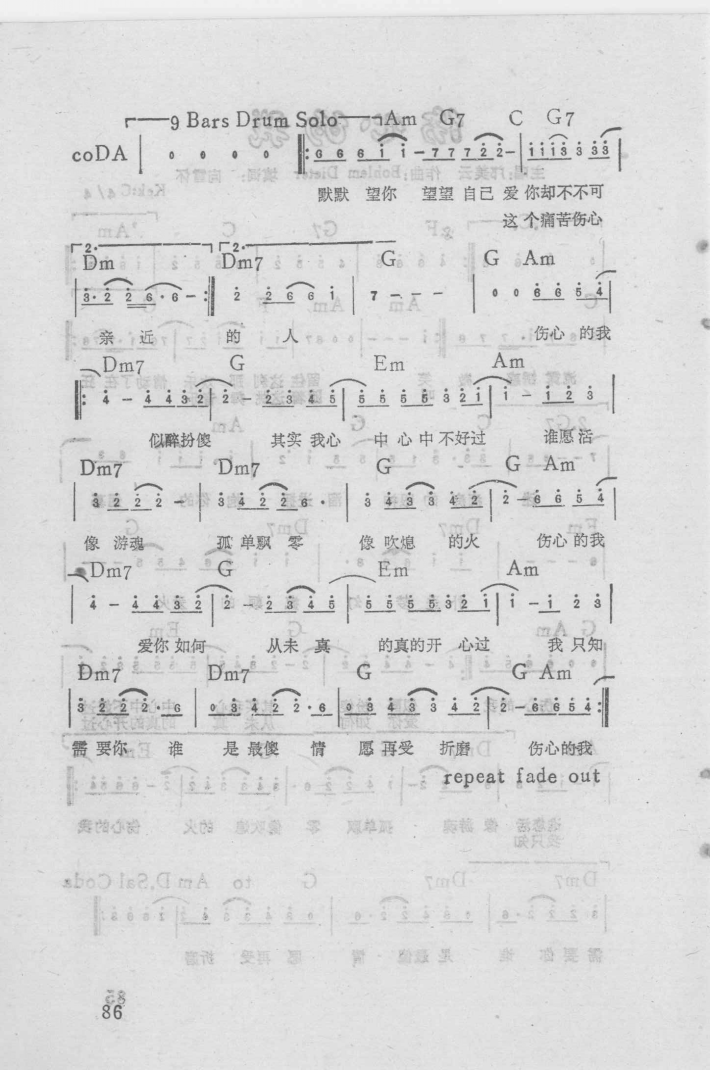 9 Bars Drum Solo Am G7 C G7
coDA 0 0 0 0 6 6 6 i i - 7 7 7 2 2 - i i i 3 3 3 3
默默 望你 望望 自己 爱 你却不不可
这 个痛苦伤心
2. 2.
Dm Dm7 G G Am
3 · 2 2 6 · 6 - 2 2 6 6 i 7 - - - 0 0 6 6 5 4
亲 近 的 人 伤心 的我
Dm7 G Em Am
4 - 4 4 3 2 2 - 2 3 4 5 5 5 5 5 3 2 i i - 1 2 3
似醉扮傻 其实 我心 中 心 中 不好过 谁愿 活
Dm7 Dm7 G G Am
3 2 2 2 - 3 4 2 2 6 · 3 4 3 3 4 2 2 - 6 6 5 4
像 游魂 孤 单飘 零 像 吹熄 的火 伤心 的我
Dm7 G Em Am
4 - 4 4 3 2 2 - 2 3 4 5 5 5 5 5 3 2 i i - 1 2 3
爱你 如何 从未 真 的真的开 心过 我 只知
Dm7 Dm7 G G Am
3 2 2 2 · 6 0 3 4 2 2 · 6 0 3 4 3 3 4 2 2 - 6 6 5 4
需 要你 谁 是 最傻 情 愿 再受 折磨 伤心的我
repeat fade out
86